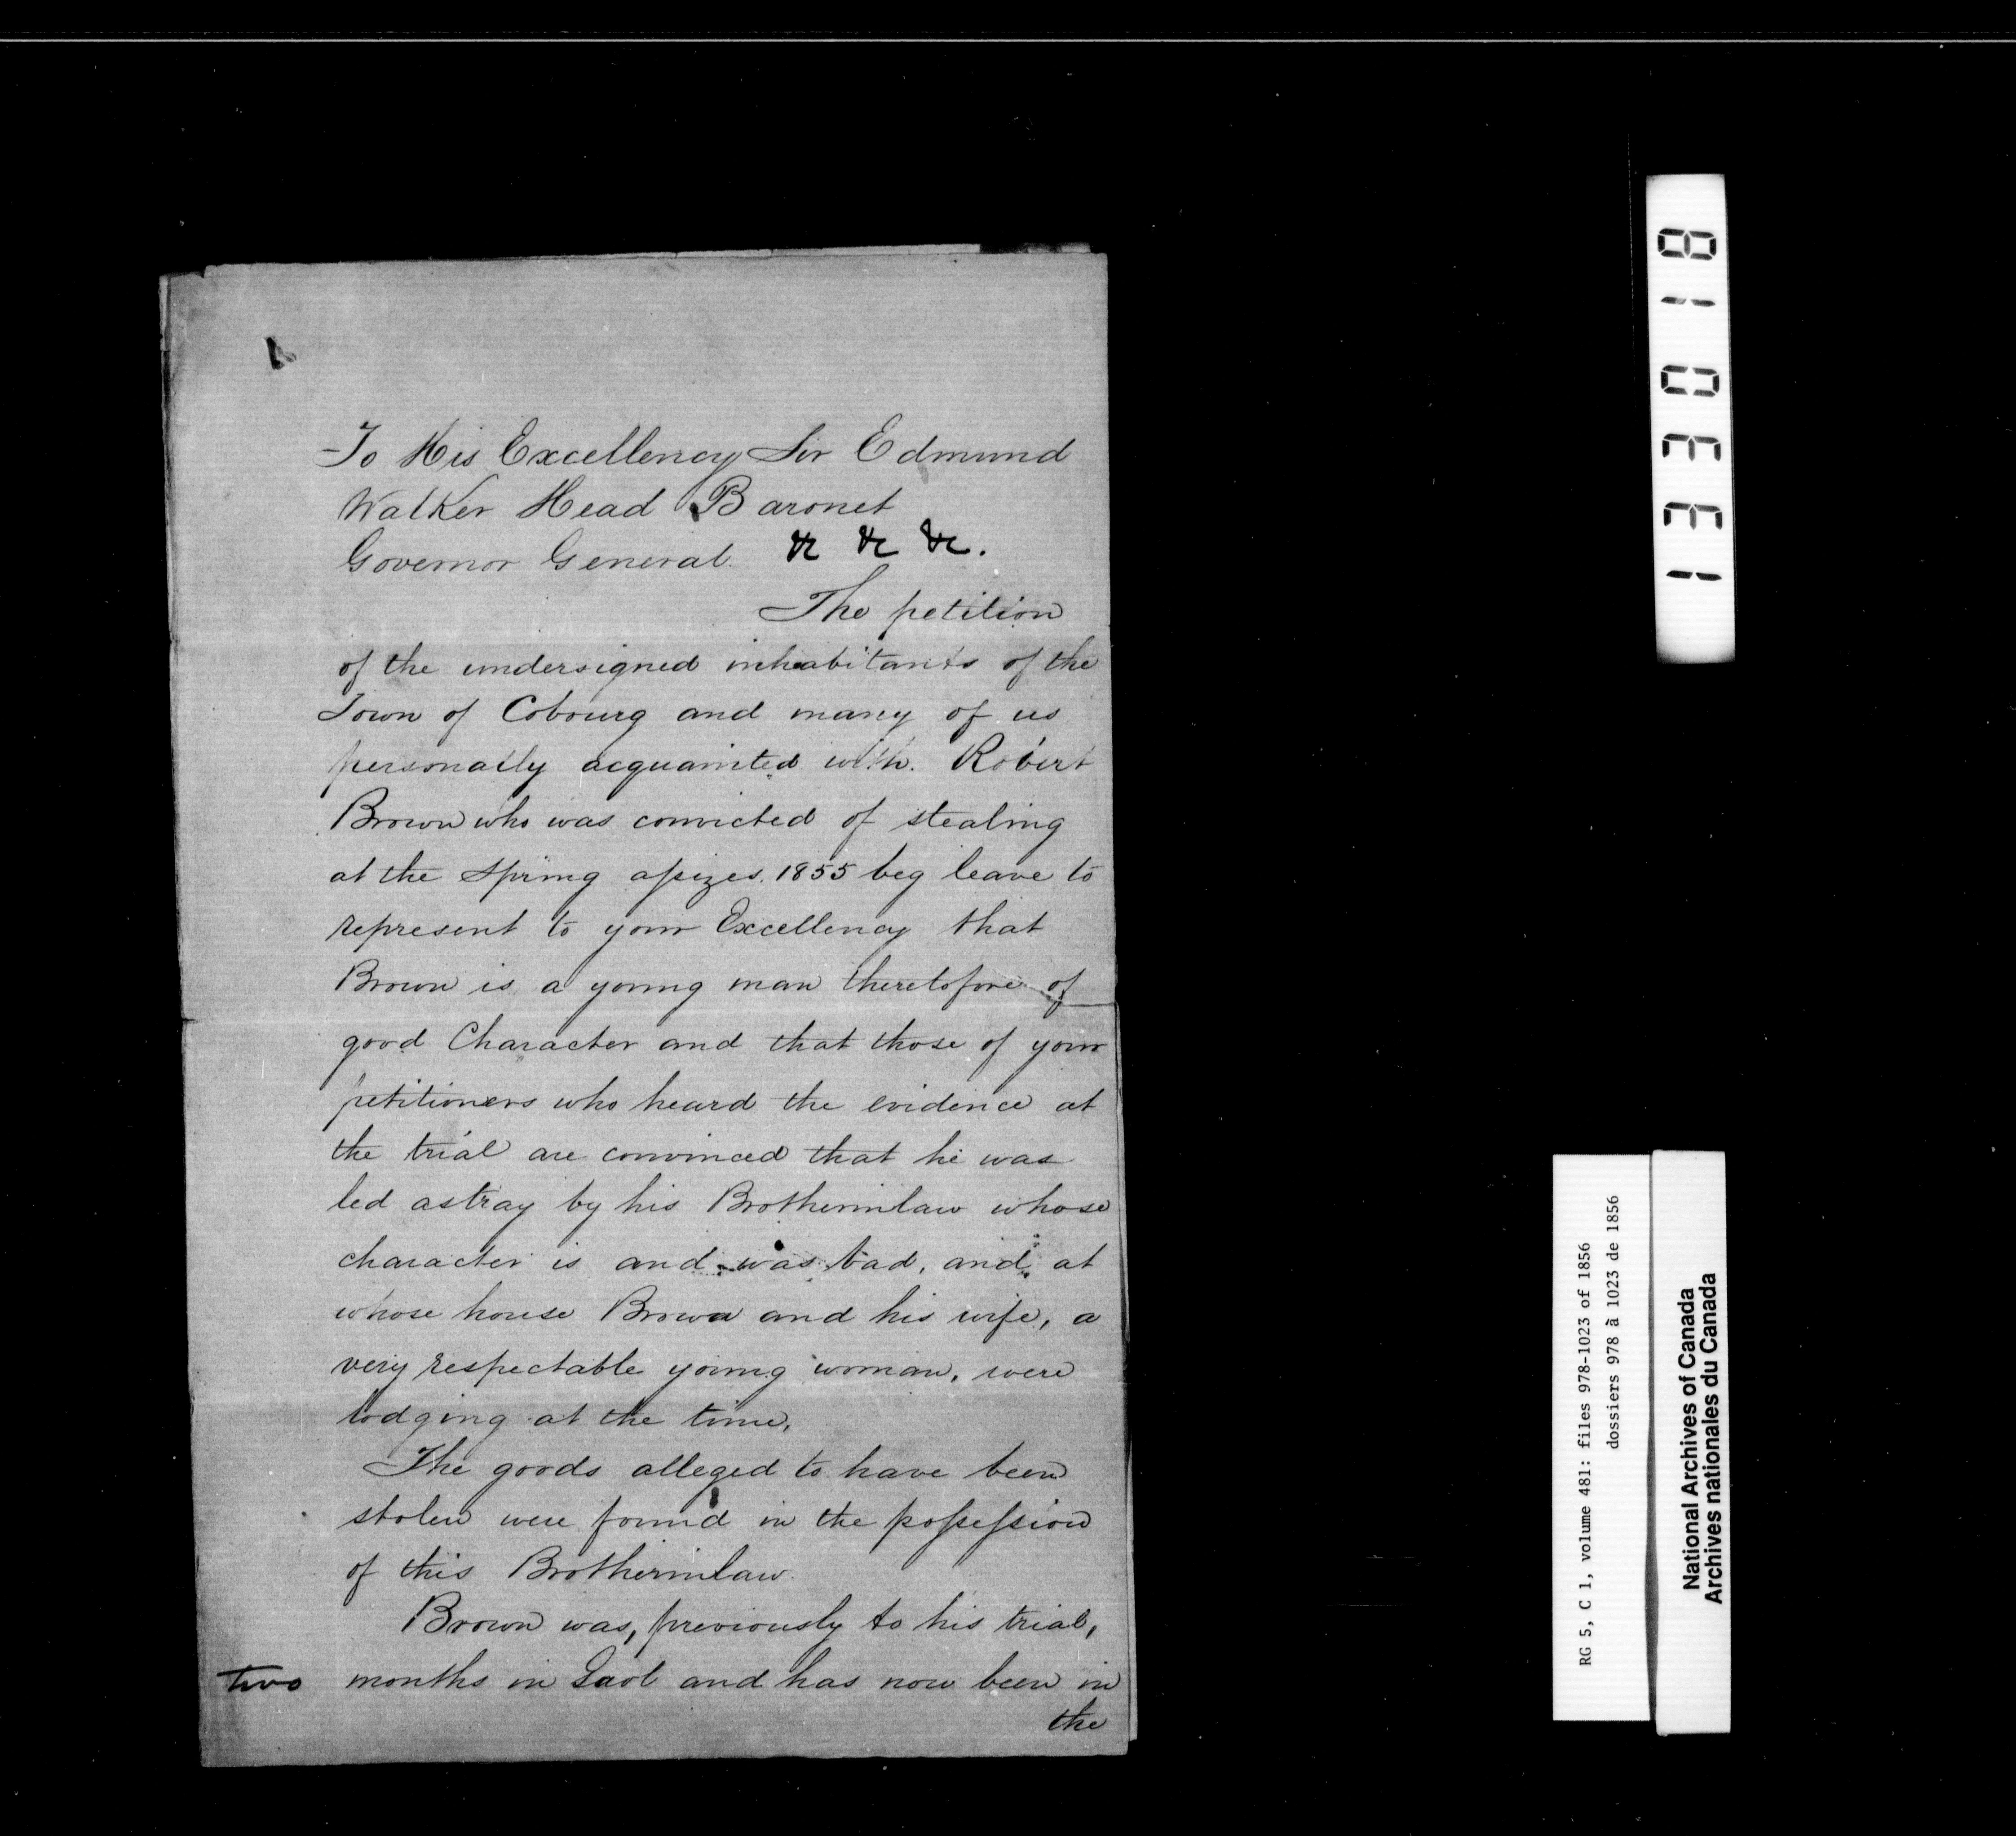 To His Excellency Sir Edmund
Walker Head Baronet
Governor General. &c &c &c.
The petition
of the undersigned inhabitants of the
Town of Cobourg and many of us
personally acquainted with. Robert
Brown who was convicted of stealing
at the Spring assizes. 1855 beg leave to
represent to your Excellency that
Brown is a young man theretofore of
good Character and that those of your
petitioners who heard the evidence at
the trial are convinced that he was
led astray by his Brotherinlaw whose
character is and was bad, and at
whose house Brown and his wife, a
very respectable young woman, were
lodging at the time.
The goods alleged to have been
stolen were found in the possession
of this Brotherinlaw.
Brown was, previously to his trial,
two months in Gaol and has now been in
the
133018
RG 5, C 1, volume 481: files 978-1023 of 1856
dossiers 978 à 1023 de 1856
National Archives of Canada
Archives nationales du Canada